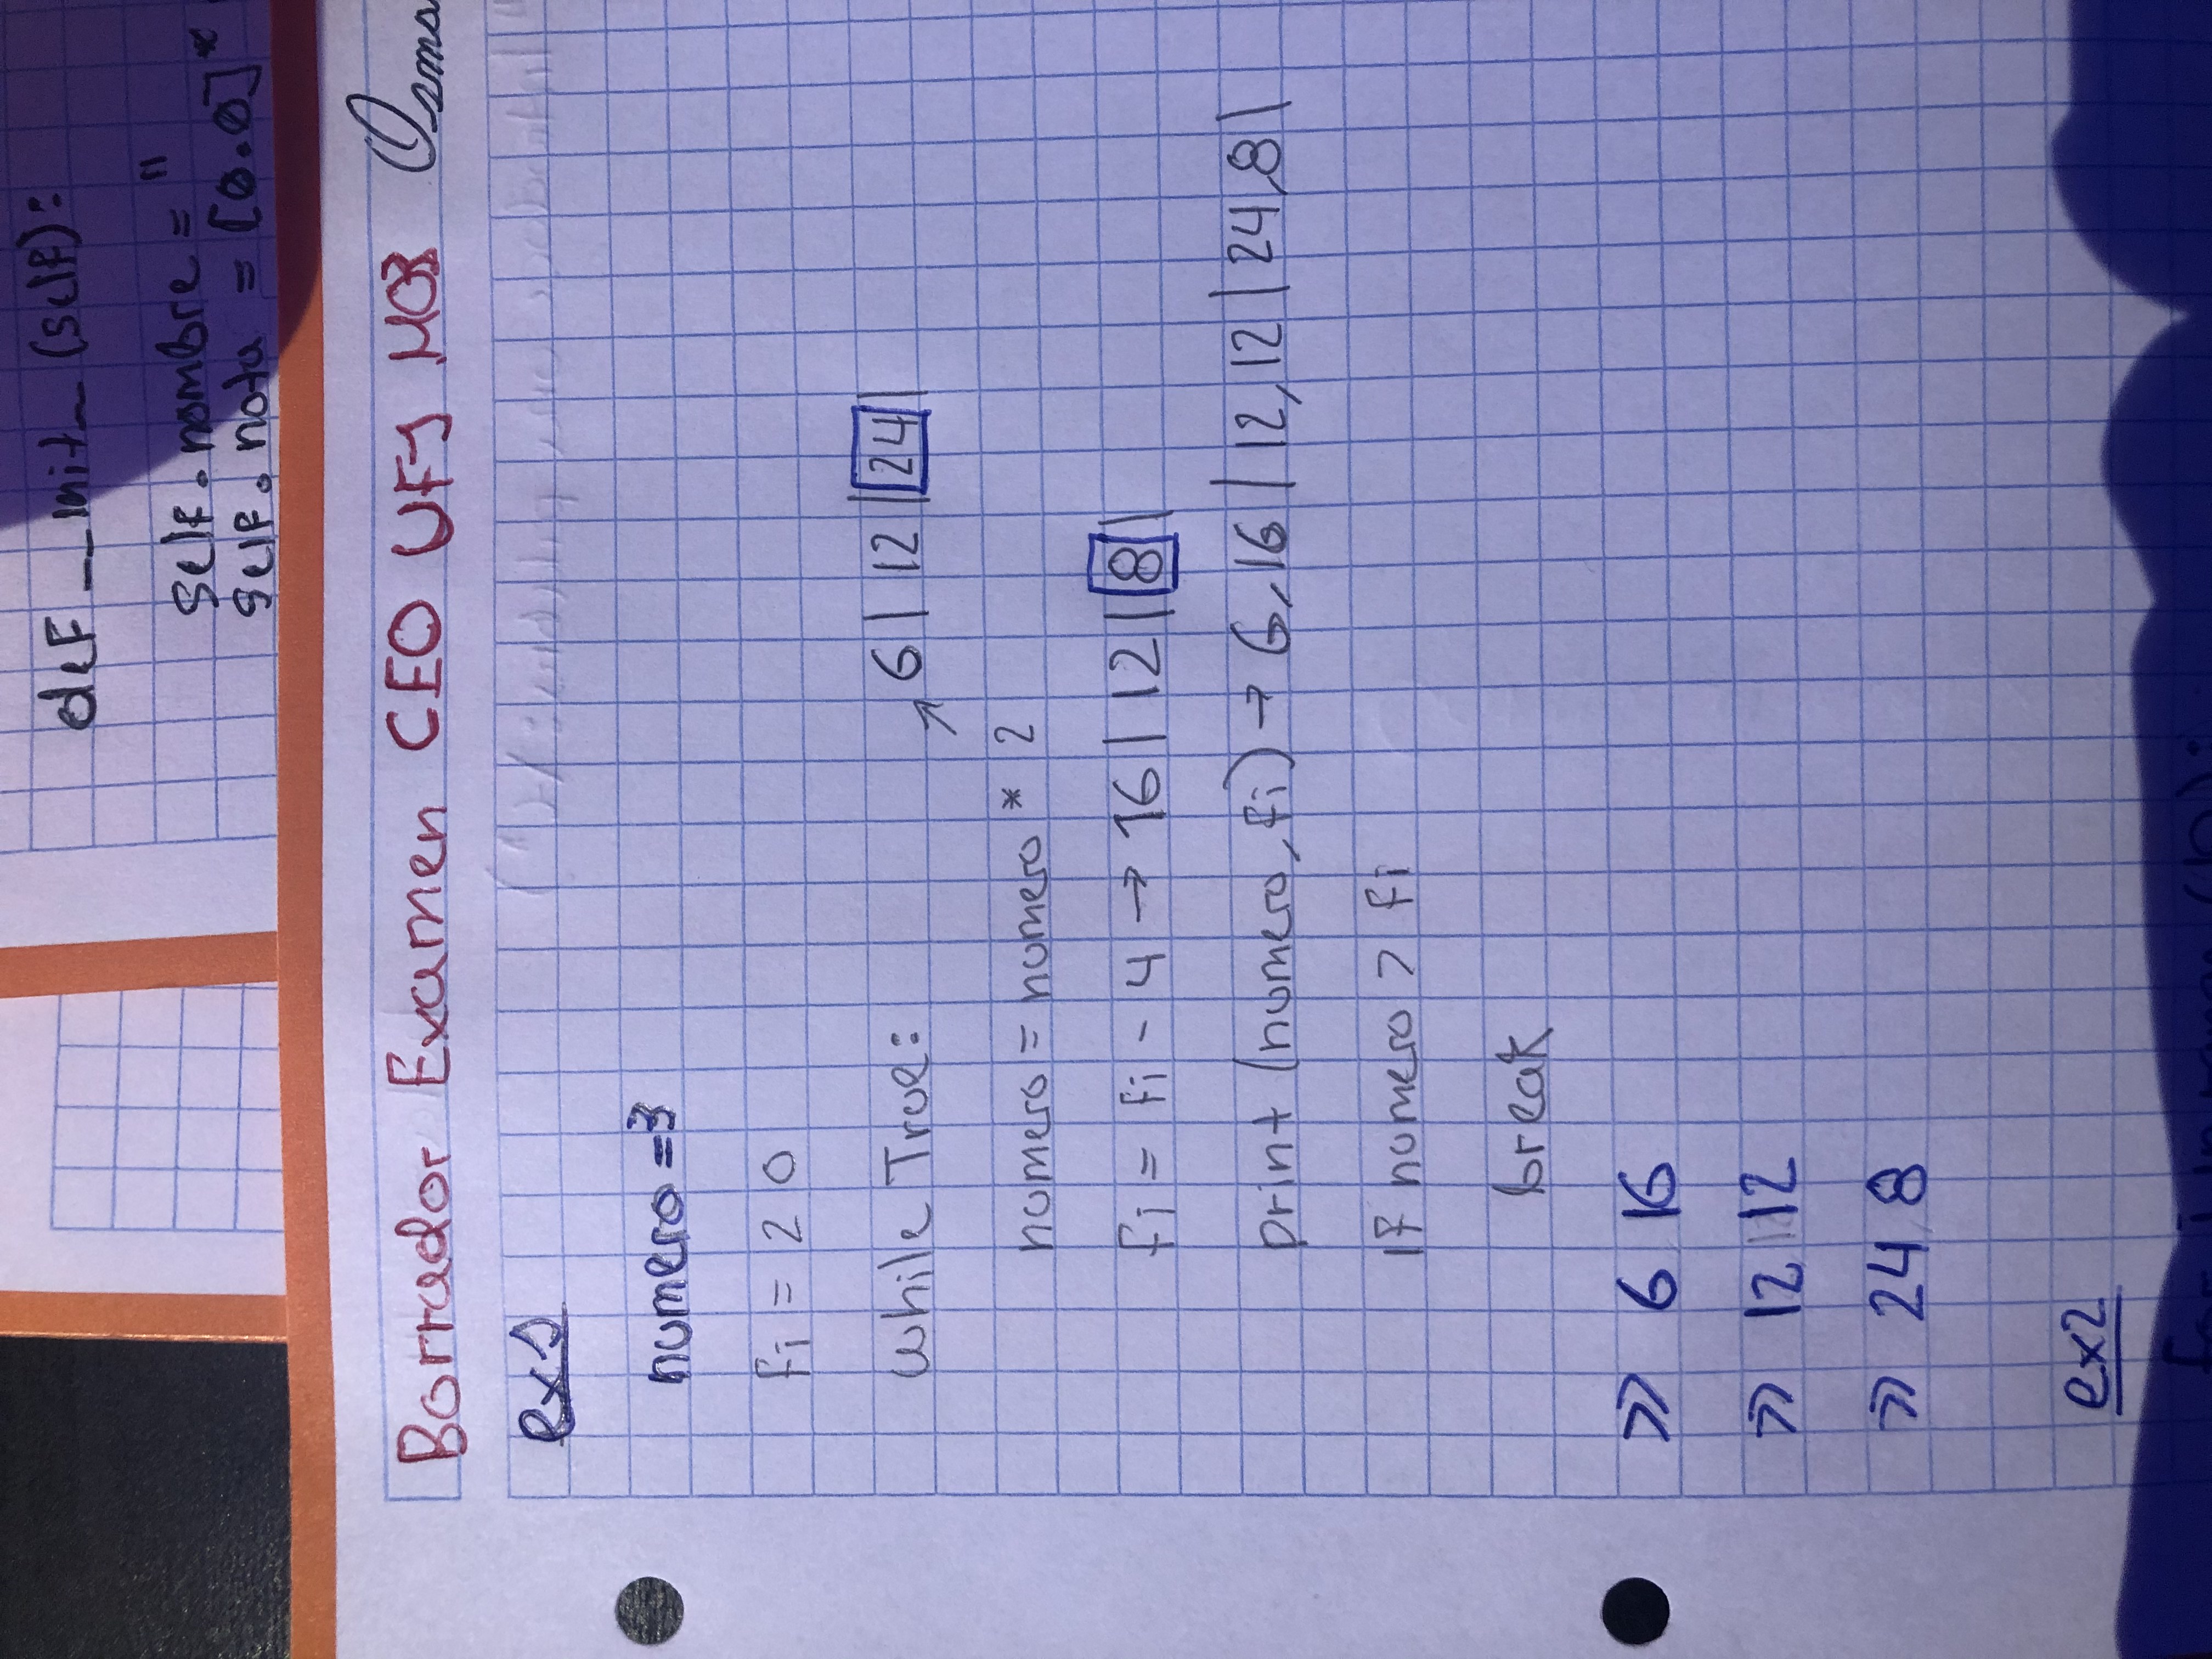 def __init__ (self):
self.nombre = "
self.nota = [0.0]*
Borrador Examen CEO UF1 M03
ex1
numero = 3
fi = 20
while True:
6 | 12 | 24 |
numero = numero * 2
fi = fi - 4 → 16 | 12 | 8 |
print (numero, fi) → 6,16 | 12,12 | 24,8 |
If numero > fi
break
>> 6 16
>> 12 12
>> 24 8
ex2
for i in range (10):